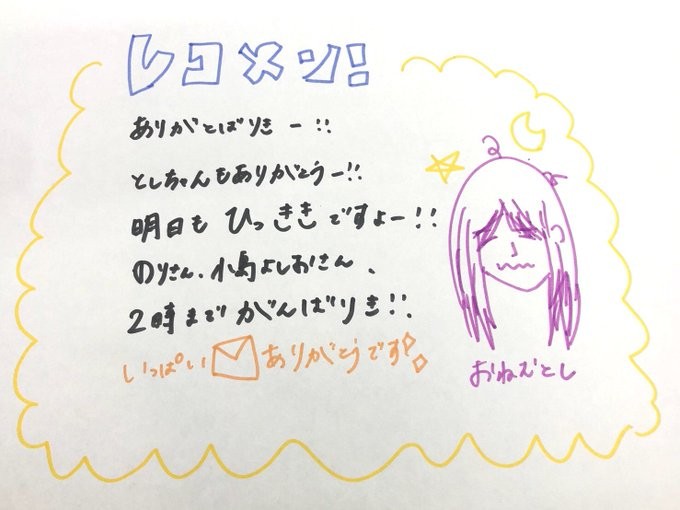 レコメン!
ありがとばりきー!!
としちゃんもありがとうー!!
明日も ひっききですよー!!
のりさん、小島よしおさん、
2時まで がんばりき!!
いっぱい ありがとうです
おねむとし